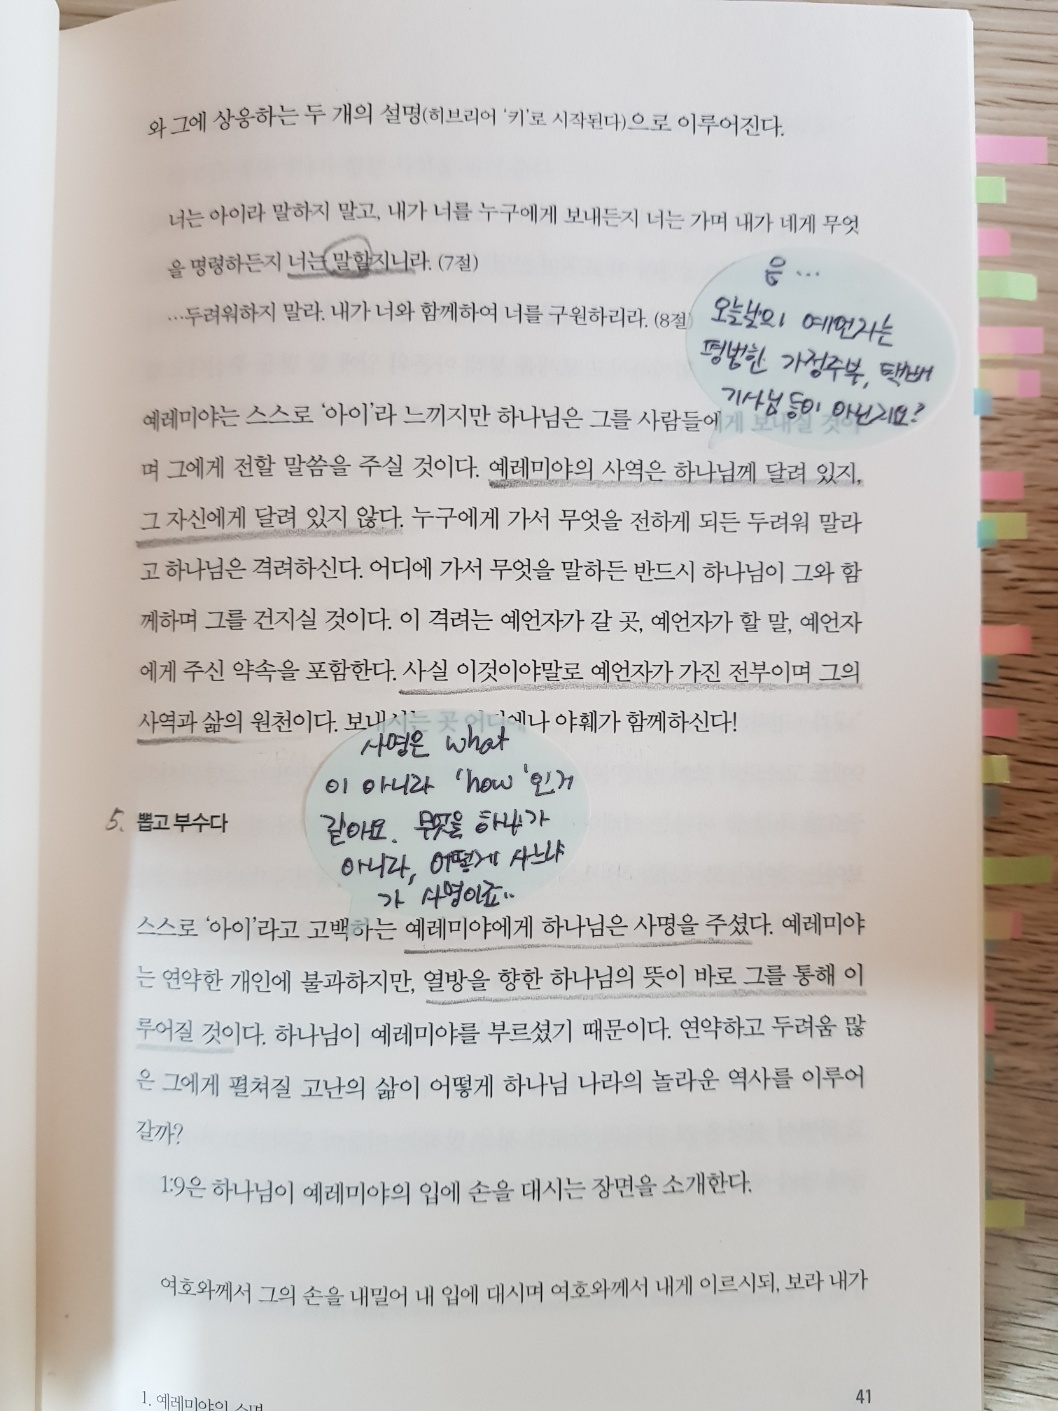 와 그에 상응하는 두 개의 설명(히브리어 ‘키’로 시작된다)으로 이루어진다.
너는 아이라 말하지 말고, 내가 너를 누구에게 보내든지 너는 가며 내가 네게 무엇
을 명령하든지 너는 말할지니라. (7절)
…두려워하지 말라. 내가 너와 함께하여 너를 구원하리라. (8절)
음...
오늘날의 예언자는
평범한 가정주부, 택배
기사님 등이 아닌지요?
예레미야는 스스로 ‘아이’라 느끼지만 하나님은 그를 사람들에게 보내실 것이
며 그에게 전할 말씀을 주실 것이다. 예레미야의 사역은 하나님께 달려 있지,
그 자신에게 달려 있지 않다. 누구에게 가서 무엇을 전하게 되든 두려워 말라
고 하나님은 격려하신다. 어디에 가서 무엇을 말하든 반드시 하나님이 그와 함
께하며 그를 건지실 것이다. 이 격려는 예언자가 갈 곳, 예언자가 할 말, 예언자
에게 주신 약속을 포함한다. 사실 이것이야말로 예언자가 가진 전부이며 그의
사역과 삶의 원천이다. 보내시는 곳 어디에나 야훼가 함께하신다!
사명은 what
이 아니라 ‘how’인거
같아요. 무엇을 하냐가
아니라, 어떻게 사느냐
가 사명이죠..
5. 뽑고 부수다
스스로 ‘아이’라고 고백하는 예레미야에게 하나님은 사명을 주셨다. 예레미야
는 연약한 개인에 불과하지만, 열방을 향한 하나님의 뜻이 바로 그를 통해 이
루어질 것이다. 하나님이 예레미야를 부르셨기 때문이다. 연약하고 두려움 많
은 그에게 펼쳐질 고난의 삶이 어떻게 하나님 나라의 놀라운 역사를 이루어
갈까?
1:9은 하나님이 예레미야의 입에 손을 대시는 장면을 소개한다.
여호와께서 그의 손을 내밀어 내 입에 대시며 여호와께서 내게 이르시되, 보라 내가
1. 예레미야의 소명
41